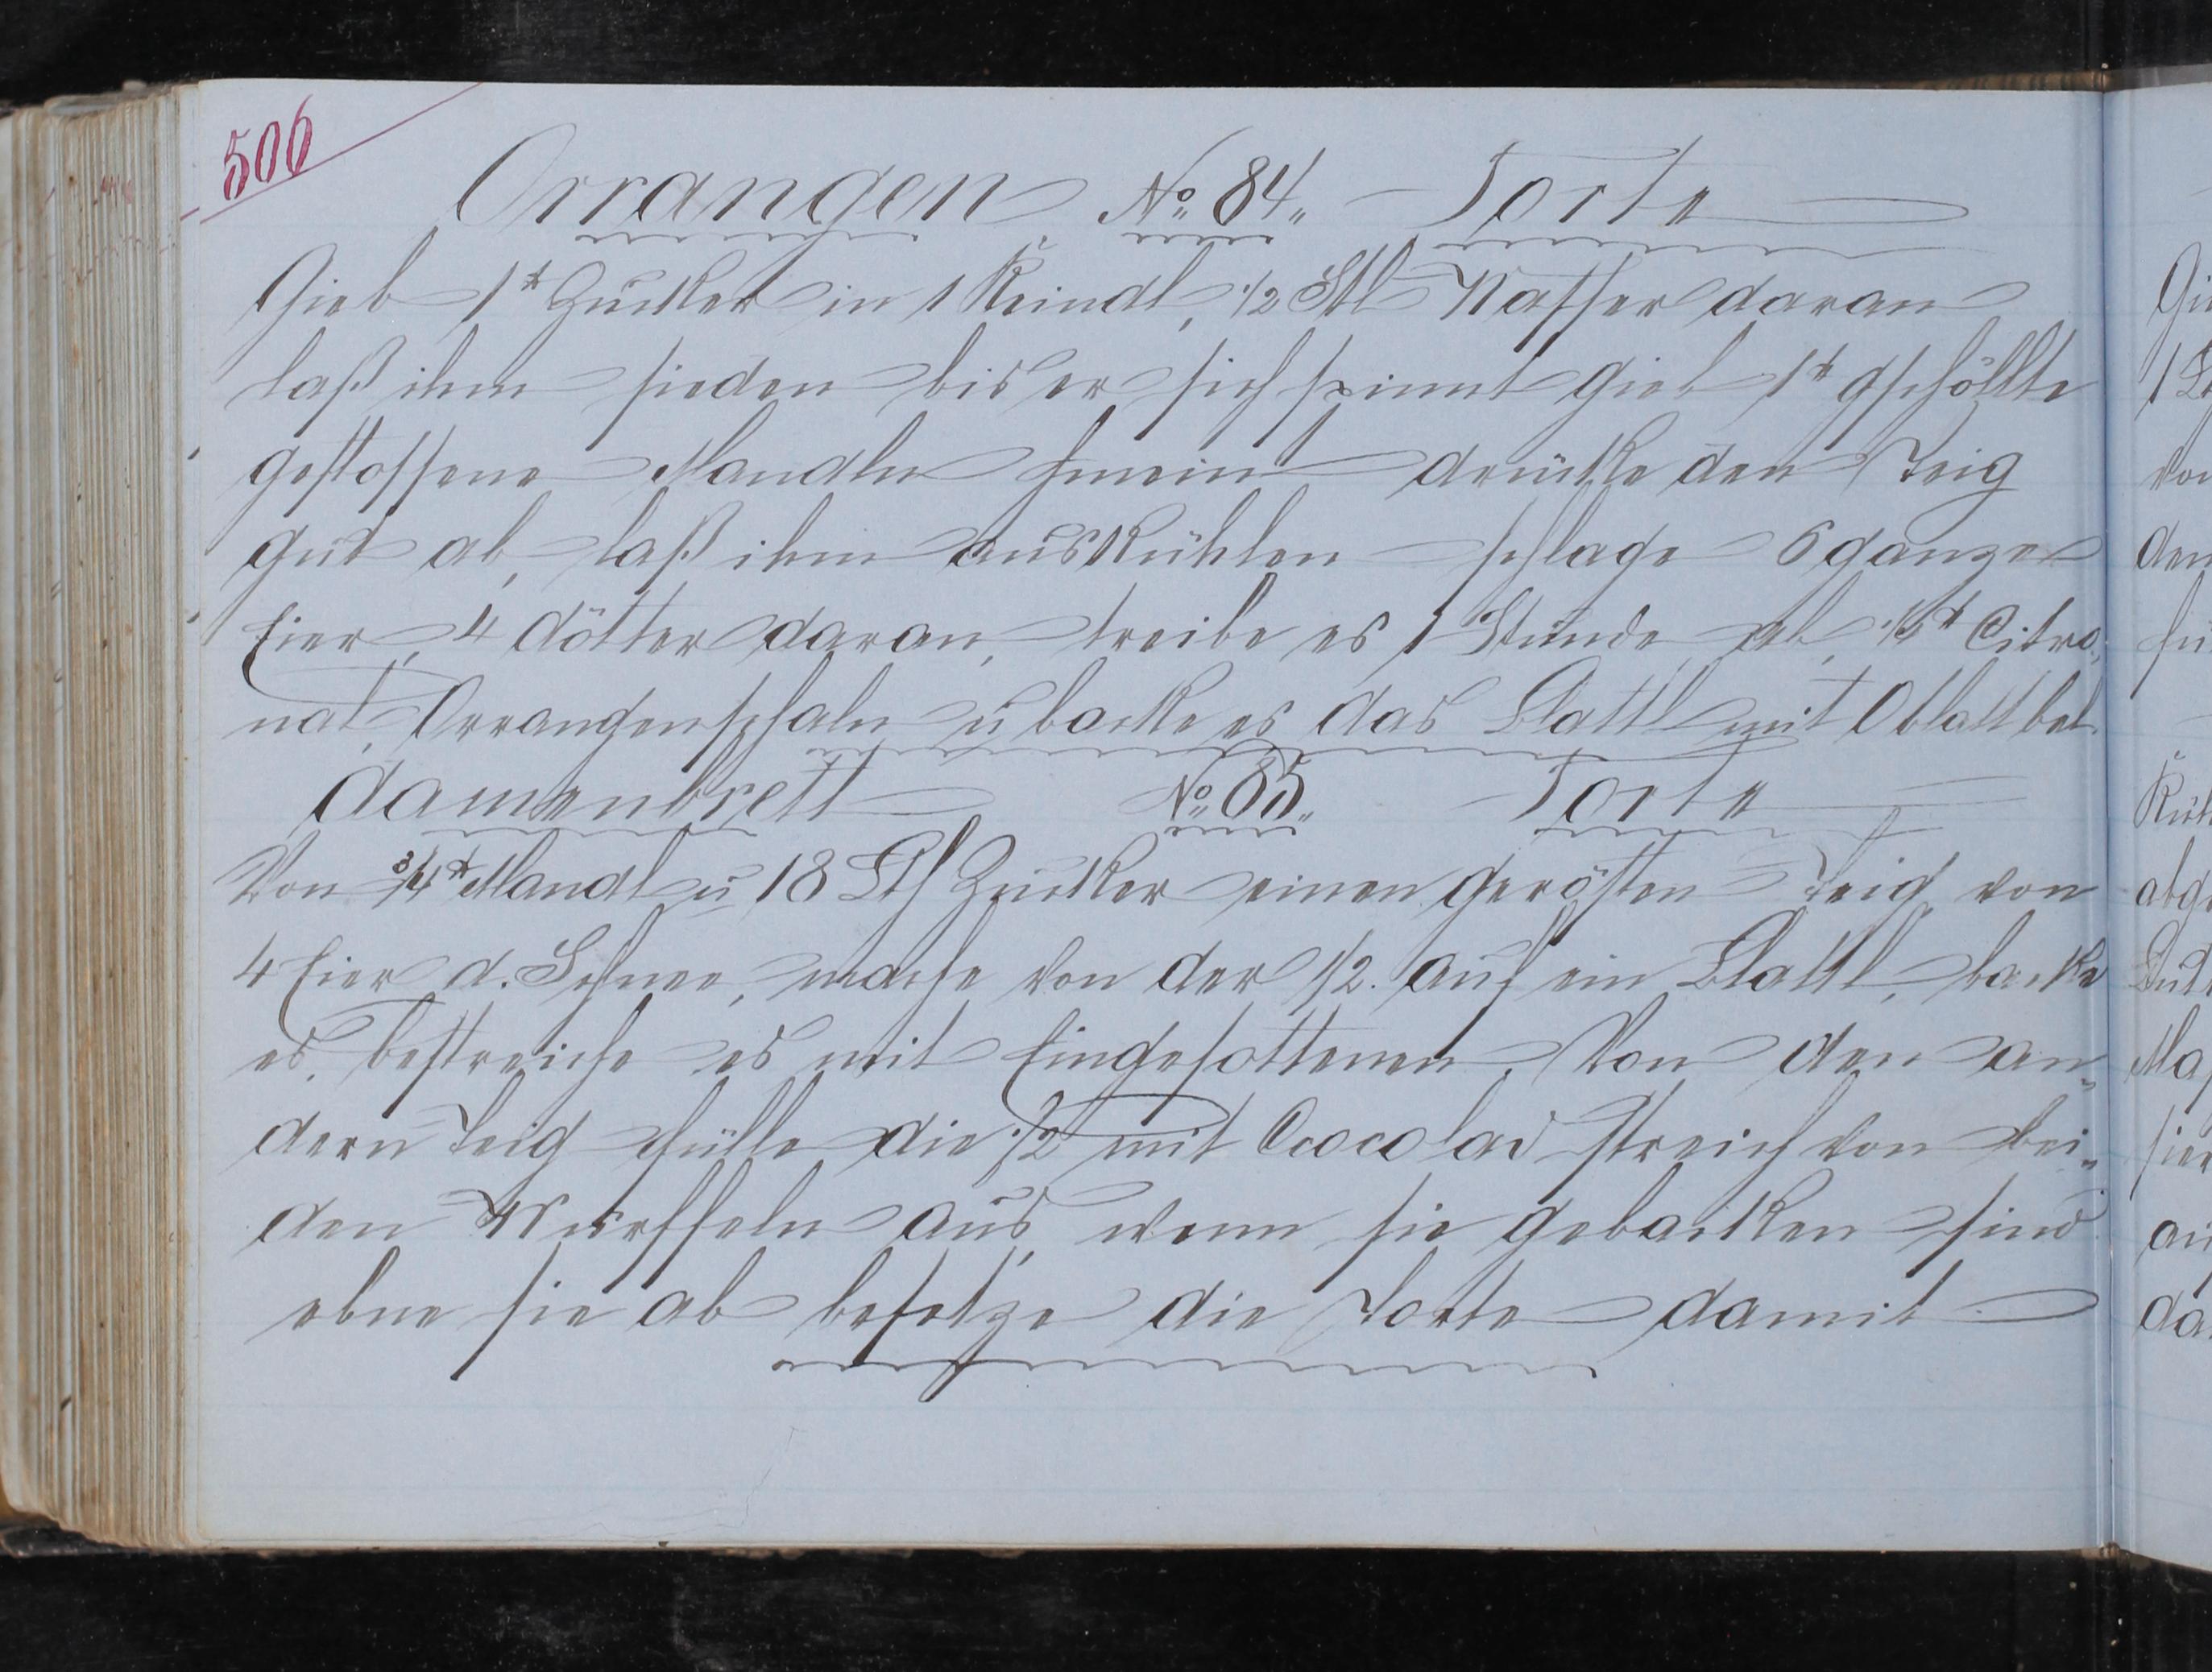 506
Orrangen No. 84. Torte
Gieb 1 ℔ Zucker in 1 Reindl, 1/2 Stl Wasser daran
laß ihm sieden bis er sich spinnt gieb 1 ℔ gschöllte
gestossene Mandln hinein drücke den Teig
gut ab, laß ihm auskühlen schlage 6 ganze
Eier, 4 Dötter daran, treibe es 1 Stunde ab, ℔ Citro„
nat, Orrangenschaln u backe es, das Blattl mit Oblatt bel.
Damenbrett No. 85. Torte
Von 3/4 ℔ Mandl u 18 Lth Zucker einen gerösten Teig von
4 Eier d. Schnee, mache von der 1/2. auf ein Blattl, backe
es, bestreiche es mit Eingesottenen. Von den an„
dern Teig fülle die 1/2 mit Cocolad streich von bei„
den Würffeln aus, wenn sie gebacken sind
ebne sie ab besetze die Torte damit